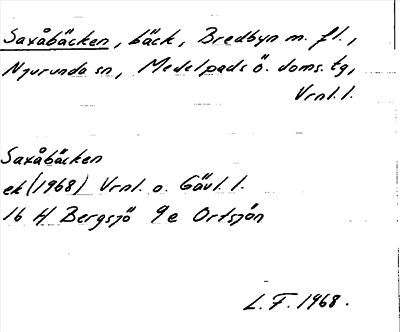 Saxåbäcken, bäck, Bredbyn m. fl.,
Njurunda sn, Medelpads ö. doms. tg,
Vrnl. l.
Saxåbäcken
ek (1968) Vrnl. o. Gävl. l.
16 H Bergsjö 9e Ortsjön
L. F. 1968.